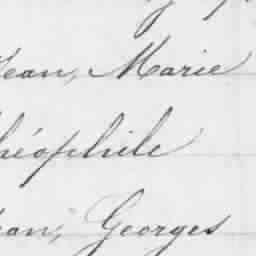 Jean, Marie
Théophile
Jean, Georges